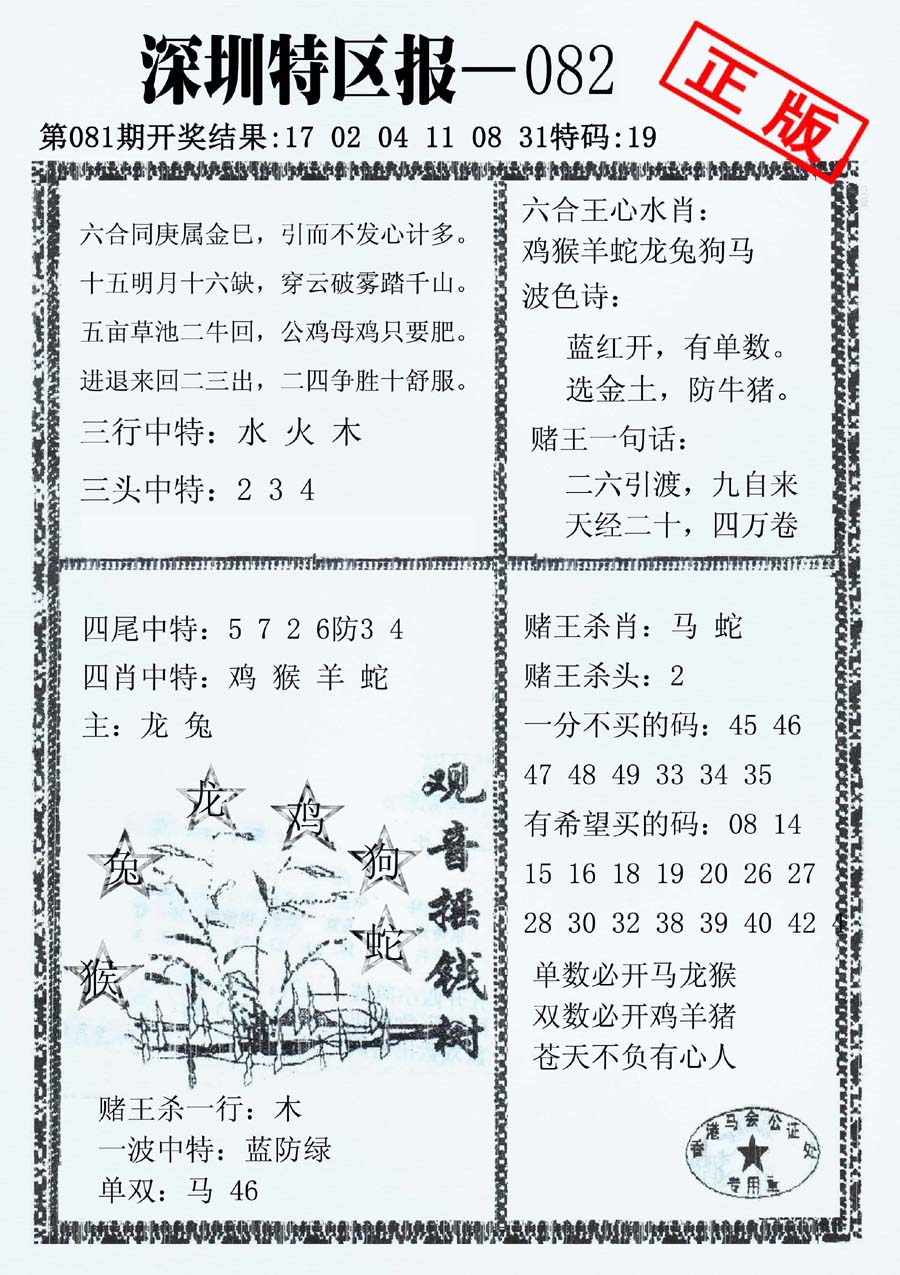 深圳特区报—082
正版
第081期开奖结果:17 02 04 11 08 31特码:19
六合同庚属金巳，引而不发心计多。
十五明月十六缺，穿云破雾踏千山。
五亩草池二牛回，公鸡母鸡只要肥。
进退来回二三出，二四争胜十舒服。
三行中特：水 火 木
三头中特：2 3 4
六合王心水肖：
鸡猴羊蛇龙兔狗马
波色诗：
蓝红开，有单数。
选金土，防牛猪。
赌王一句话：
二六引渡，九自来
天经二十，四万卷
四尾中特：5 7 2 6防3 4
四肖中特：鸡 猴 羊 蛇
主：龙 兔
龙
鸡
兔
狗
蛇
猴
观音摇钱树
赌王杀一行：木
一波中特：蓝防绿
单双：马 46
赌王杀肖：马 蛇
赌王杀头：2
一分不买的码：45 46
47 48 49 33 34 35
有希望买的码：08 14
15 16 18 19 20 26 27
28 30 32 38 39 40 42 4
单数必开马龙猴
双数必开鸡羊猪
苍天不负有心人
香港马会公证处
专用章